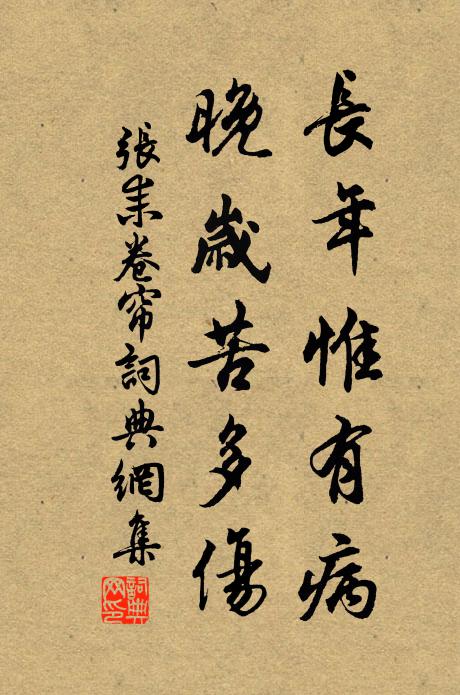 長年惟有病
晚歲苦多傷
張耒卷帘詞典網集
詞典
网印